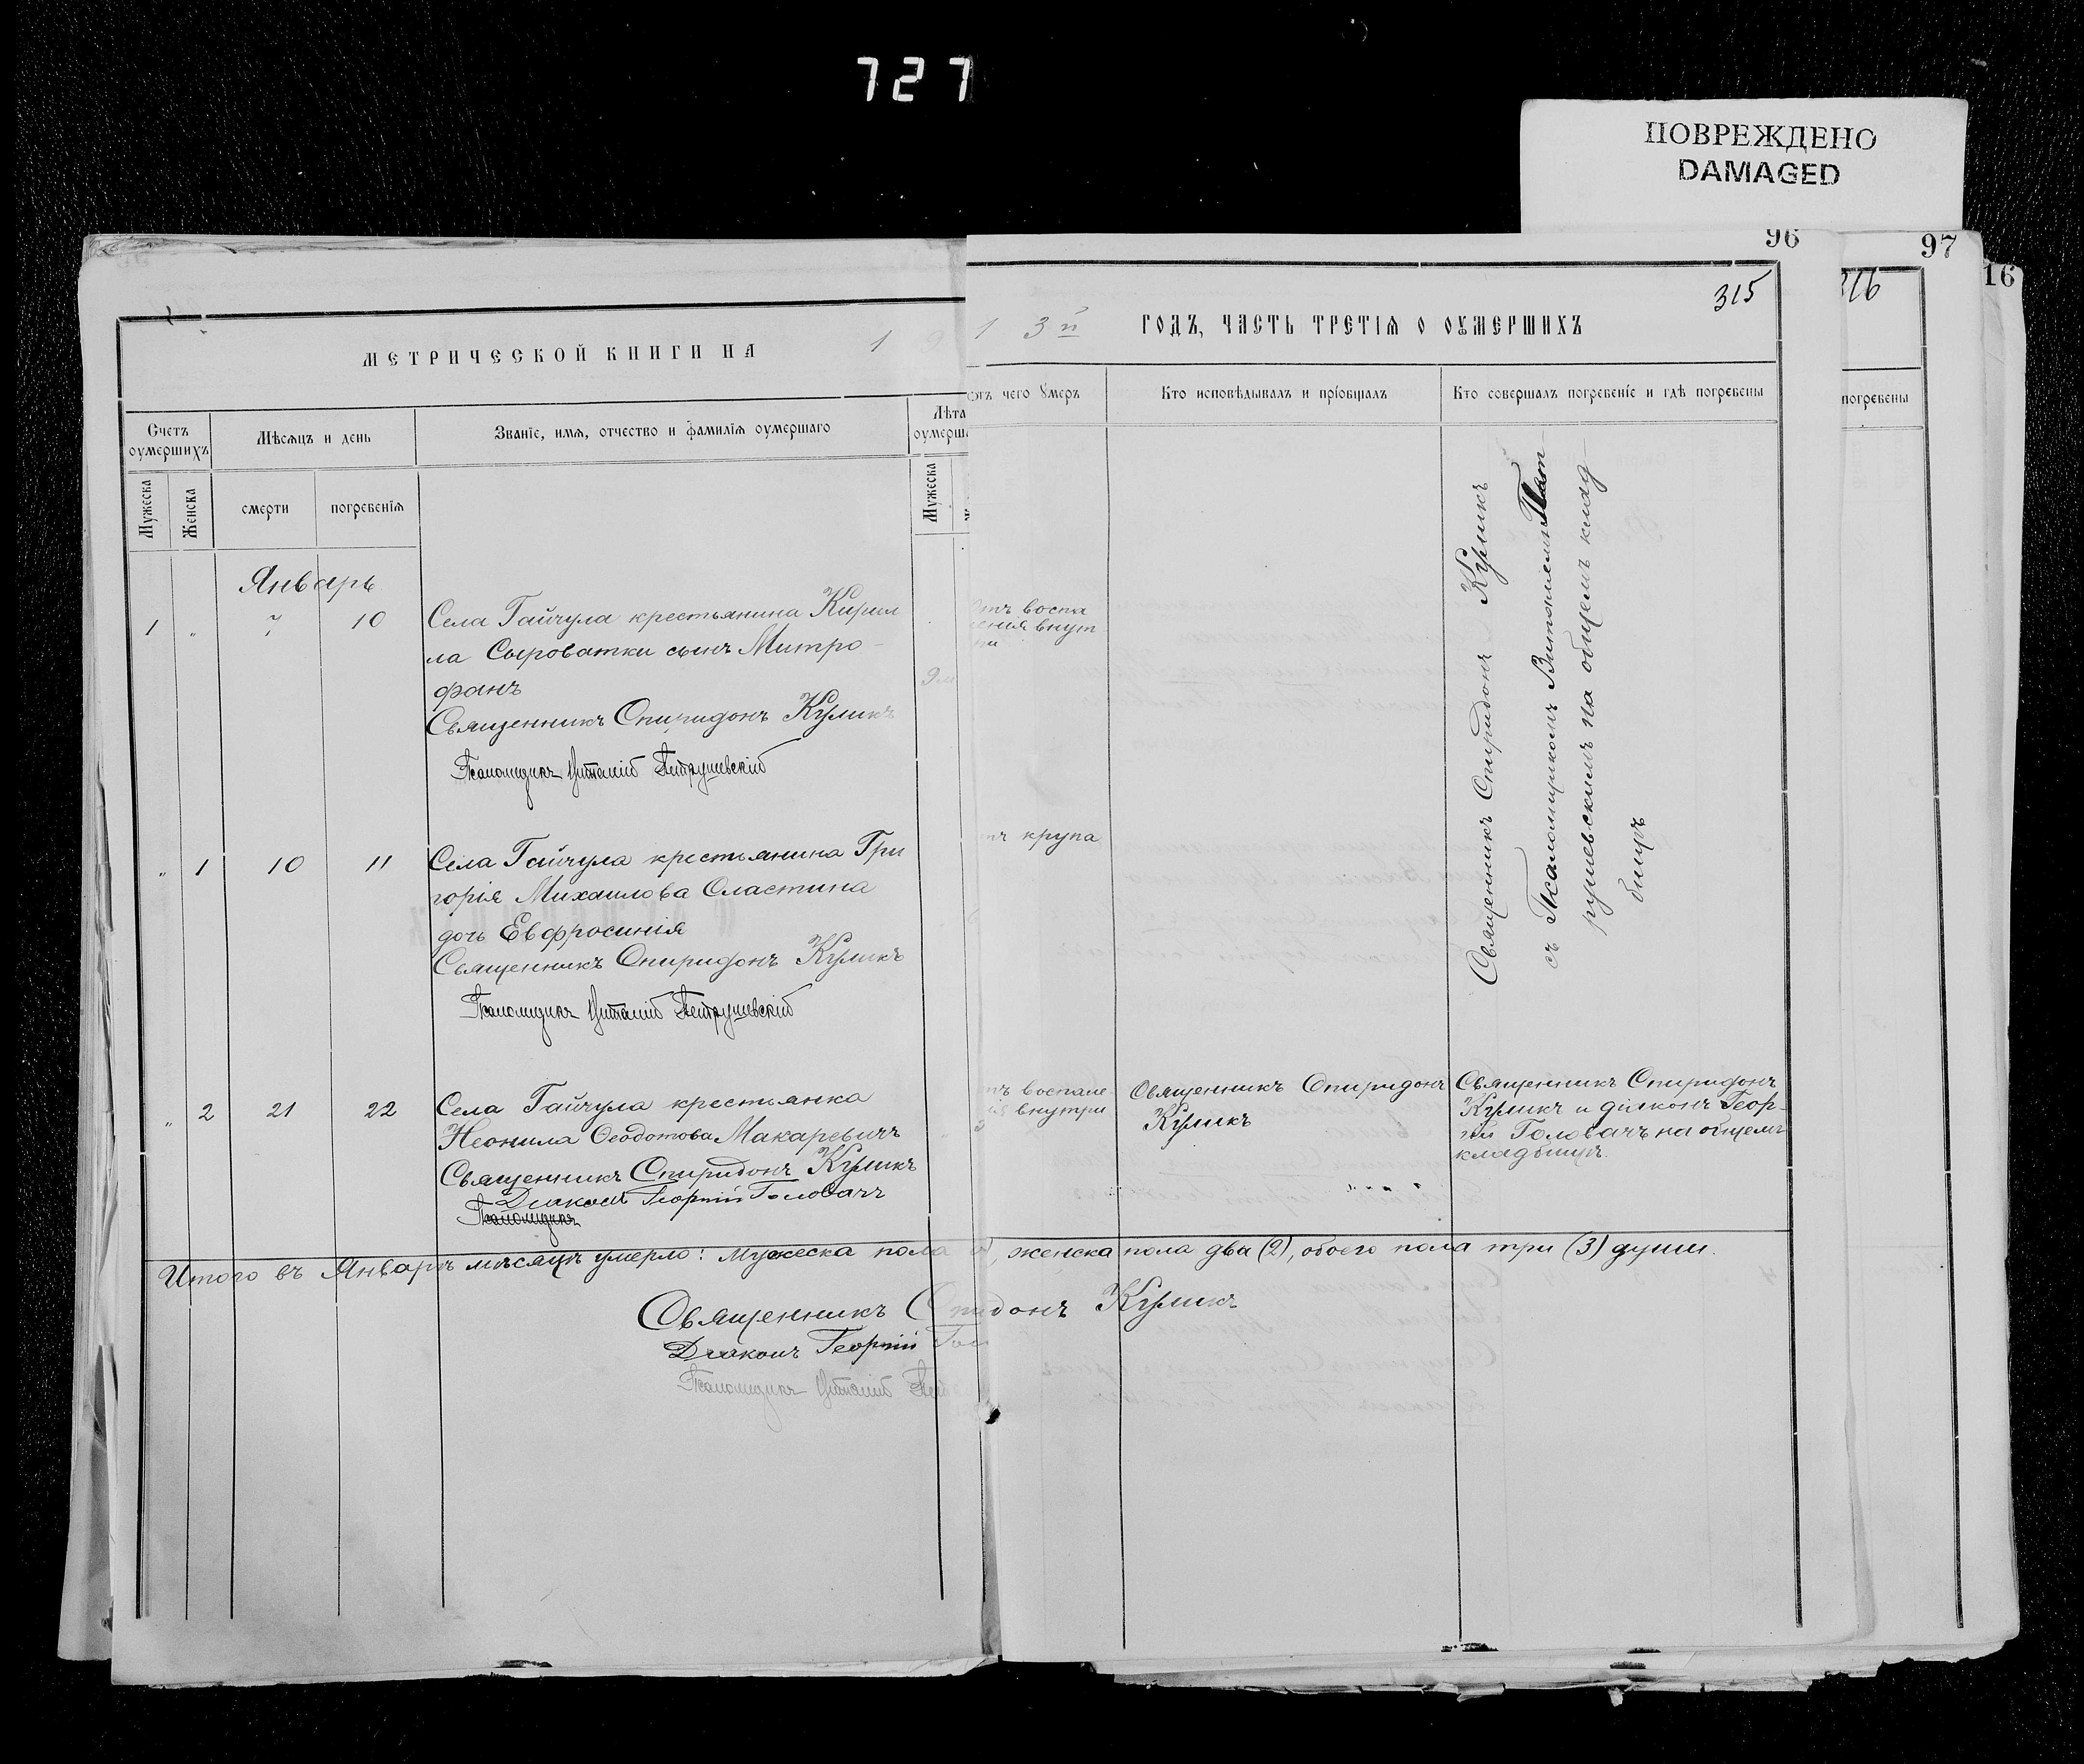 727
ПОВРЕЖДЕНО
DAMAGED
96
97
16
315
316
МЕТРИЧЕСКОЙ КНИГИ НА 1 9
1 3й ГОДЪ, ЧАСТЬ ТРЕТІЯ О ОУМЕРШИХЪ
Счетъ оумершихъ
Мѣсяцъ и день
Званіе, имя, отчество и фамилія оумершаго
Лѣта
оумерша
Отъ чего Умеръ
Кто исповѣдывалъ и пріобщалъ
Кто совершалъ погребеніе и гдѣ погребены
погребены
Мужеска
Женска
смерти
погребенія
Мужеска
Январь
1 " 7 10
Села Гайчула крестьянина Кирил
ла Сыроватки сынъ Митро-
фанъ
9м
Священникъ Спиридонъ Кулик
Псаломщикъ Виталій Петрушевскій
Отъ воспа
ленія внут
ри
Священникъ Спиридонъ Куликъ
съ Псаломщикомъ Виталіемъ Пет-
рушевскимъ на общемъ клад-
бищѣ
" 1 10 11
Села Гайчула крестьянина Гри
горія Михаилова Сластина
дочь Евфросинія
Священникъ Спиридонъ Куликъ
Псаломщикъ Виталій Петрушевскій
крупа
" 2 21 22
Села Гайчула крестьянка
Неонила Ѳеодотова Макаревичъ
Священникъ Спиридонъ Куликъ
Діаконъ Георгій Головачъ
Псаломщикъ
воспале
внутри
Священникъ Спиридонъ
Куликъ
Священникъ Спиридонъ
Куликъ и діаконъ Геор-
гій Головачъ на общемъ
кладбищѣ.
Итого въ Январѣ мѣсяцѣ умерло: мужеска пола , женска пола два (2), обоего пола три (3) души.
Священникъ Спиридонъ Куликъ
Діаконъ Георгій Гол
Псаломщикъ Виталій Пет